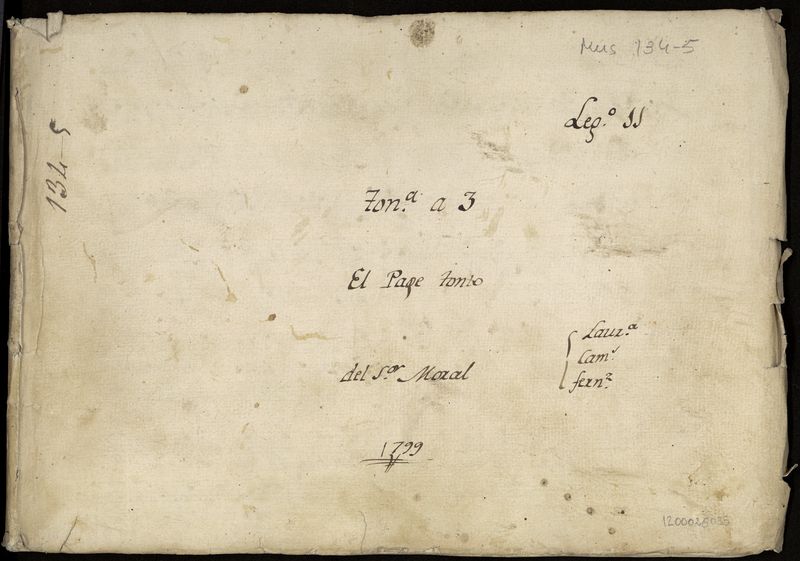 Mus 134-5
Leg.º 11
134-5
Ton.ª a 3
El Page tonto
del S.or Moral
Laur.ª
Cam.s
fern.z
1799
1200028035